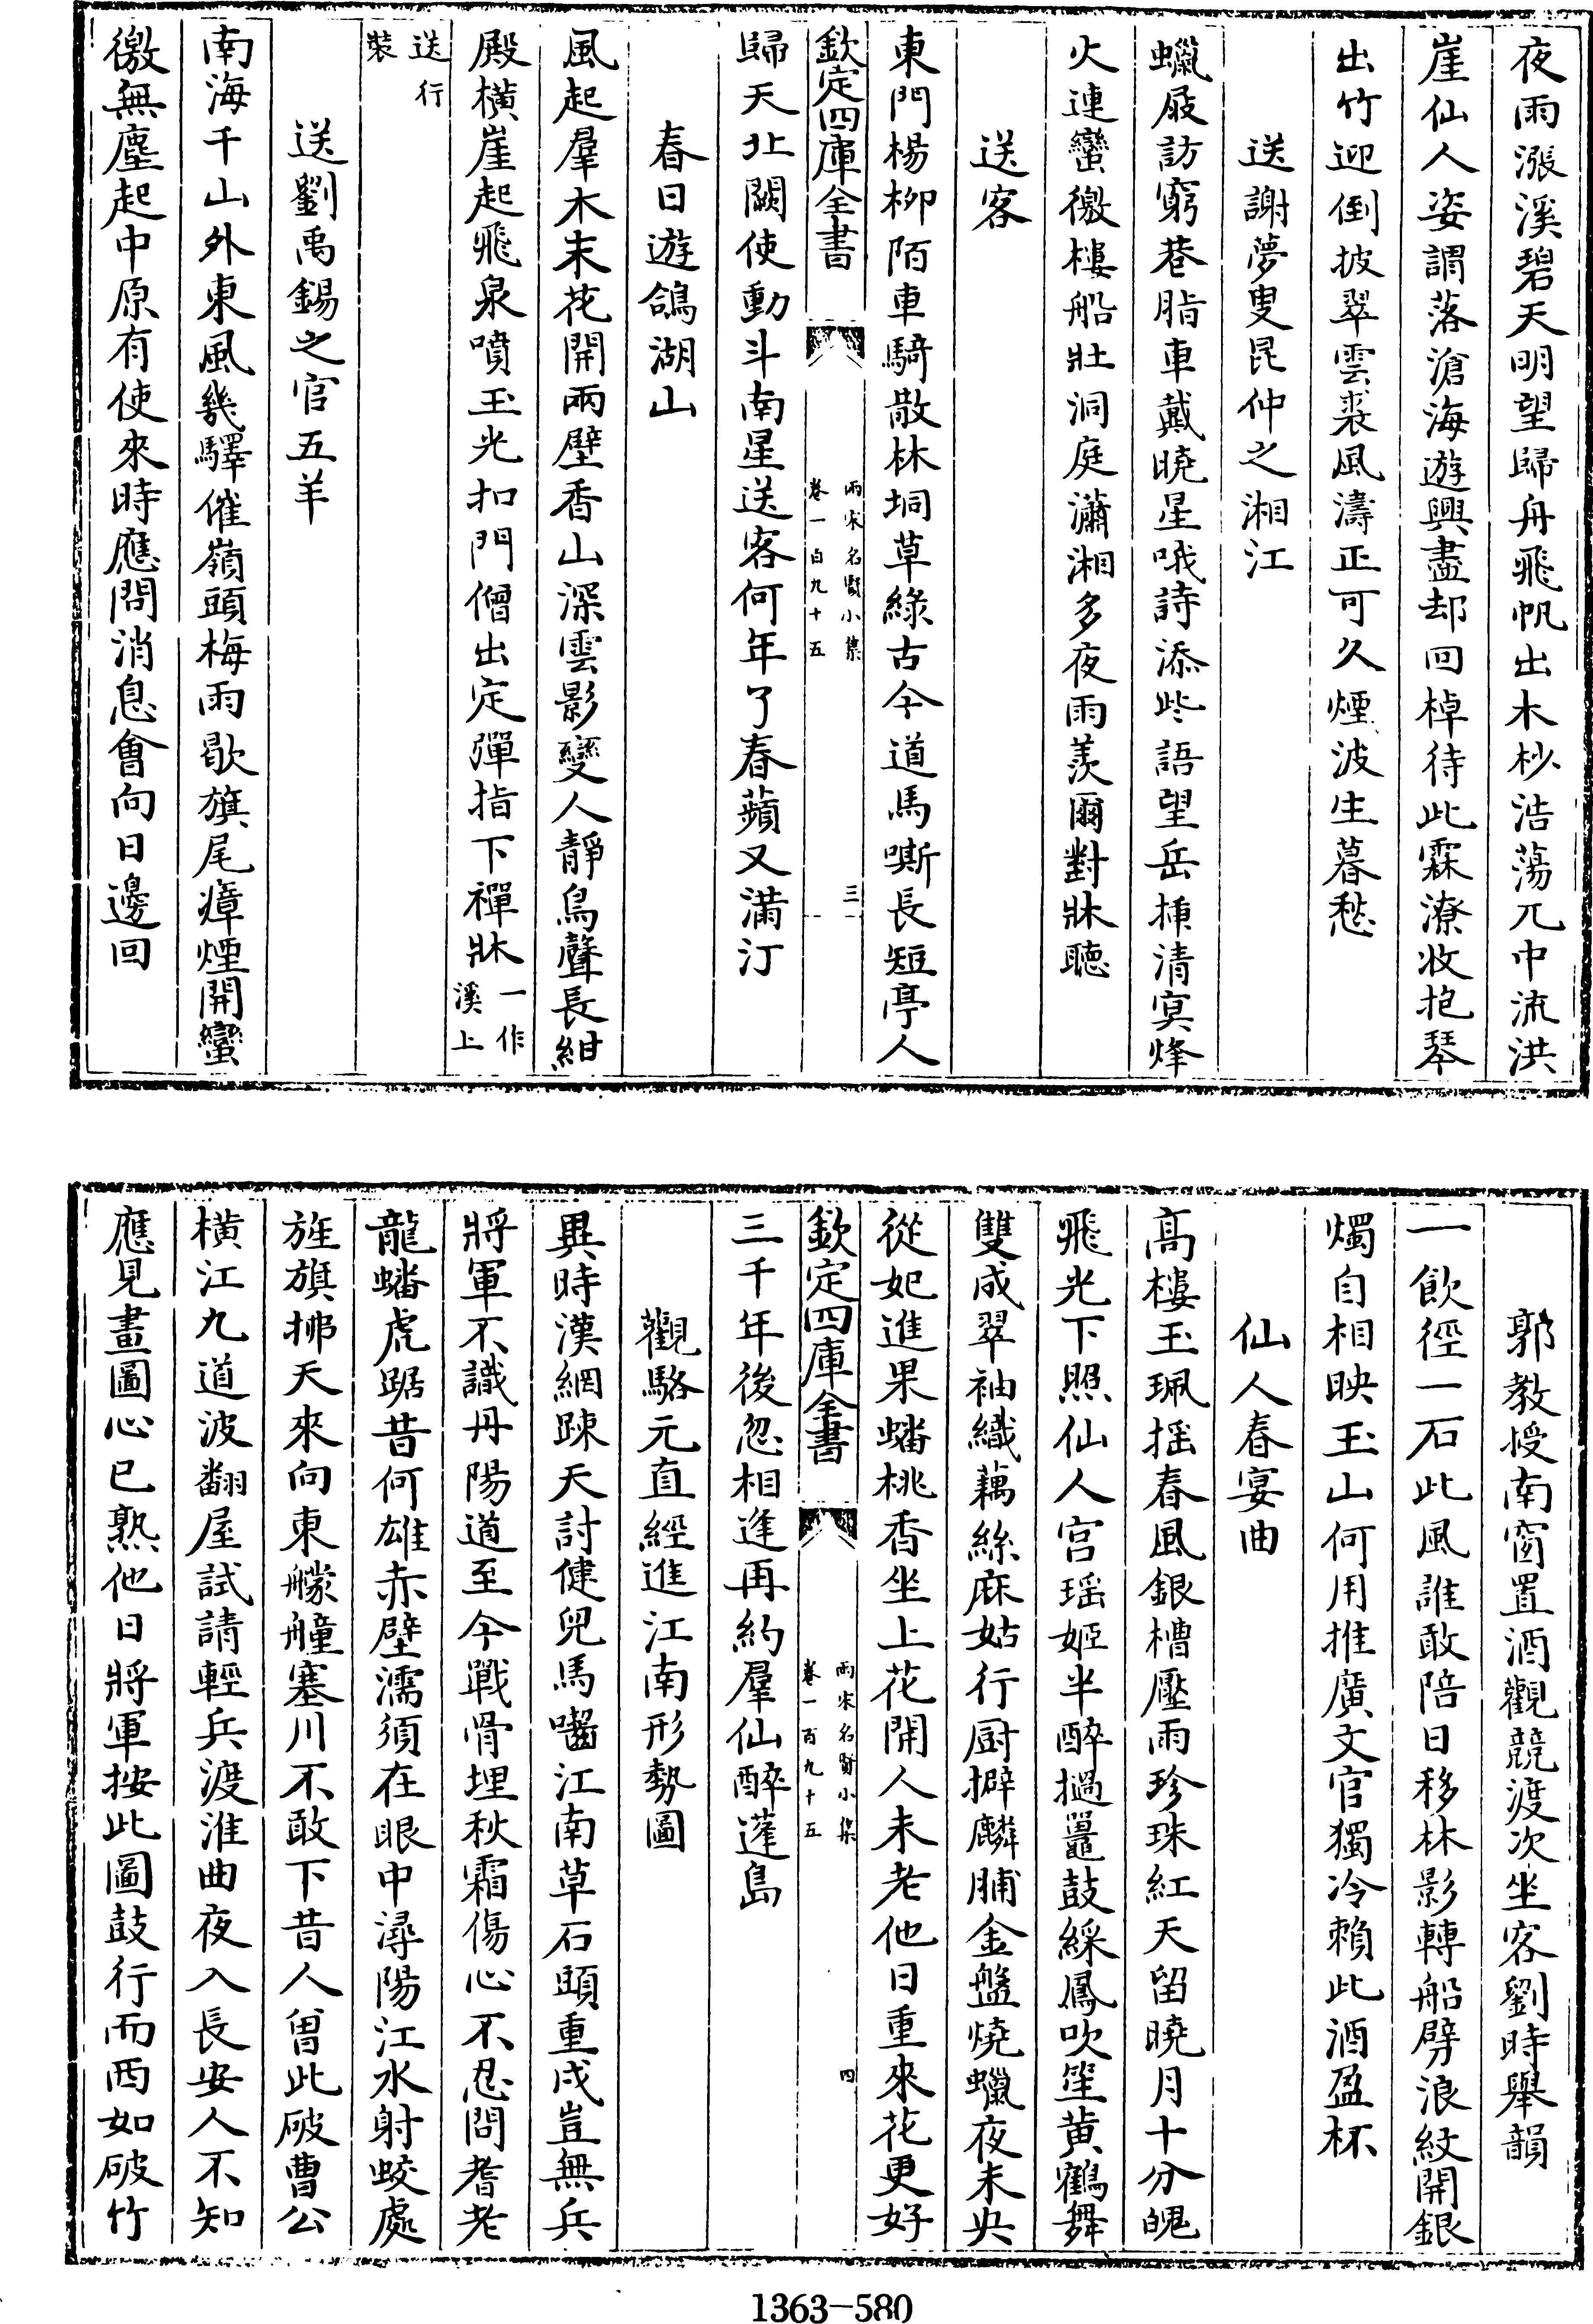 夜雨漲溪碧天明望歸舟飛帆出木杪浩蕩兀中流洪
崖仙人姿謂落滄海遊興盡却回棹待此霖潦收抱琴
出竹迎倒披翠雲裘風濤正可久煙波生暮愁
送謝夢叟昆仲之湘江
蠟屐訪窮巷脂車戴曉星哦詩添些語望岳揷清㝠烽
火連蠻徼樓船壯洞庭瀟湘多夜雨羨爾對牀聽
送客
東門楊柳陌車騎散林坰草綠古今道馬嘶長短亭人
欽定四庫全書
兩宋名賢小集
卷一百九十五
三
歸天北闕使動斗南星送客何年了春蘋又滿汀
春日遊鴿湖山
風起羣木末花開兩壁香山深雲影變人靜鳥聲長紺
殿橫崖起飛泉噴玉光扣門僧出定彈指下禪牀一作
溪上
送行
裝
送劉禹錫之官五羊
南海千山外東風幾驛催嶺頭梅雨歇旗尾瘴煙開蠻
徼無塵起中原有使來時應問消息會向日邊回
郭教授南窗置酒觀競渡次坐客劉時舉韻
一飲徑一石此風誰敢陪日移林影轉船劈浪紋開銀
燭自相映玉山何用推廣文官獨冷賴此酒盈杯
仙人春宴曲
高樓玉珮揺春風銀槽壓雨珍珠紅天留曉月十分魄
飛光下照仙人宮瑶姬半醉撾鼉鼓綵鳳吹笙黄鶴舞
雙成翠袖織藕絲麻姑行厨擗麟脯金盤燒蠟夜未央
從妃進果蟠桃香坐上花開人未老他日重來花更好
欽定四庫全書
兩宋名賢小集
卷一百九十五
四
三千年後忽相逢再約羣仙醉蓬島
觀駱元直經進江南形勢圖
異時漢網踈天討健兒馬囓江南草石頭重戍豈無兵
將軍不識丹陽道至今戰骨埋秋霜傷心不忍問耆老
龍蟠虎踞昔何雄赤壁濡須在眼中潯陽江水射蛟處
旌旗拂天來向東艨艟塞川不敢下昔人曽此破曹公
橫江九道波翻屋試請輕兵渡淮曲夜入長安人不知
應見畫圖心已熟他日將軍按此圖鼓行而西如破竹
1363—580